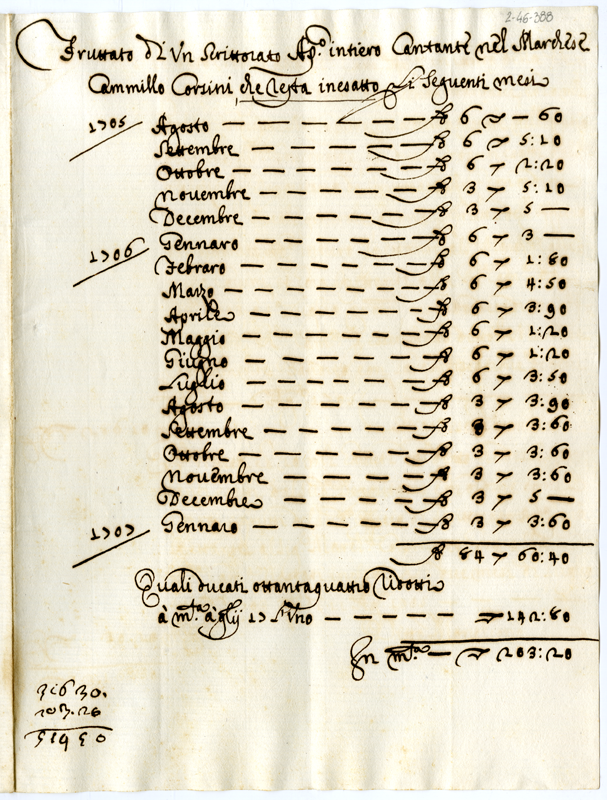 2-46-388
Fruttato di Un Scrittorato Ap.co intiero Cantante nel Marchese
Cammillo Corsini che resta inesatto li seguenti mesi
1705 Agosto — — — — — — 6 — 60
Settembre — — — — — 6 5:10
Ottobre — — — — — 6 2:20
Novembre — — — — — 3 5:10
Decembre — — — — — 3 5 —
1706 Gennaro — — — — — 6 3 —
Febraro — — — — — — 6 1:80
Marzo — — — — — — 6 4:50
Aprile — — — — — 6 3:90
Maggio — — — — — 6 1:20
Giugno — — — — — 6 1:20
Luglio — — — — — 6 3:50
Agosto — — — — — 3 3:90
Settembre — — — — — 3 3:60
Ottobre — — — — — 3 3:60
Novembre — — — — 3 3:60
Decembre — — — — 3 5 —
1707 Gennaro — — — — — 3 3:60
84 60:40
Quali ducati ottantaquattro ridotti
à m.ta à glij 17 l'uno — — — — — 142:80
In m.ta — 203:20
316 30.
203.20
519 50